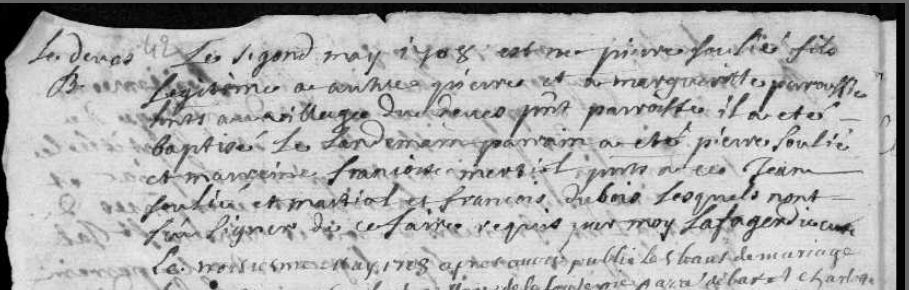 Le devés 42 Le segond may 1708 est né pierre soulié fils
B. Legitime a autre pierre et a margueritte parroissie
du village du deves pnt parroisse il a eté
baptisé Le Landemain parrain a eté pierre Soulié
et marreine francoise mertial pnts a ce Jean
soulié et martial et francois dubois Lesquels nont
sceu signer de ce faire requis par moy Lafagerdie curé
Le troisiesme May 1708 apres avoir publié les bans de mariage